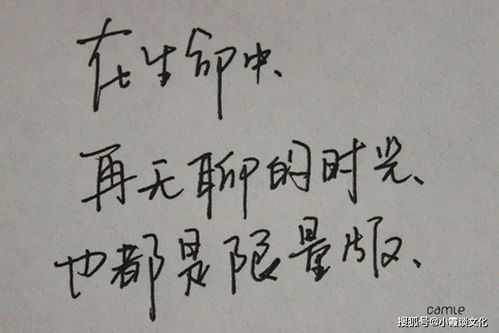 在生命中、
再无聊的时光、
也都是限量版、
camie
搜狐号@小霞谈文化